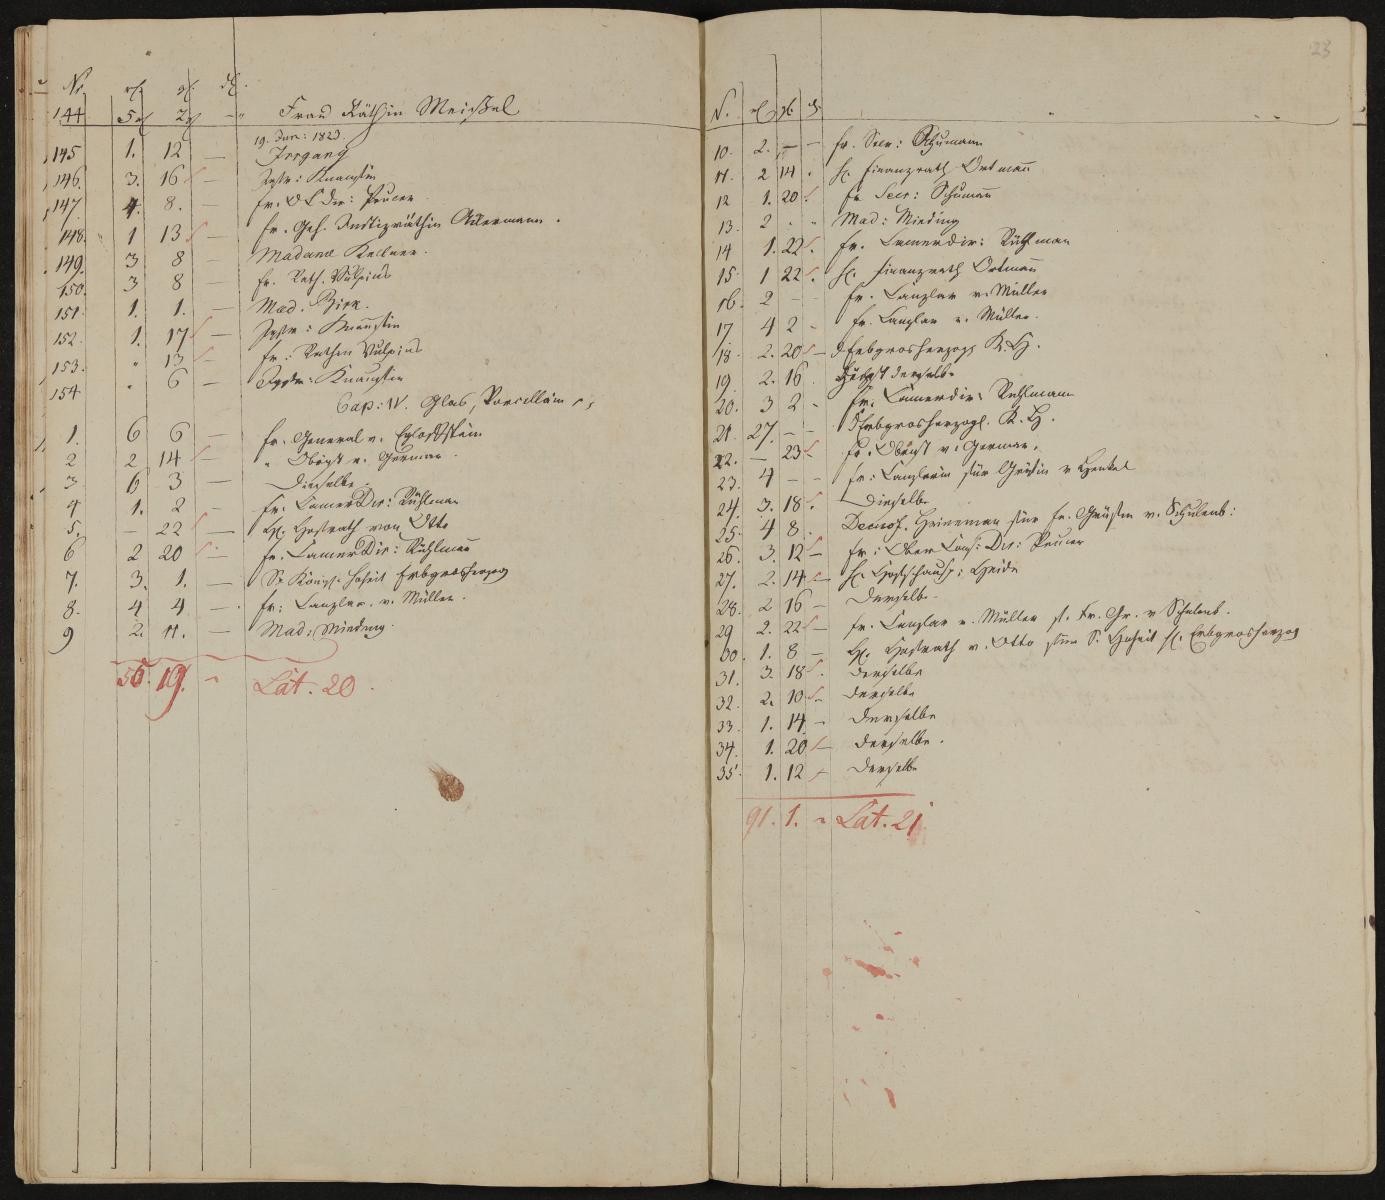 No. rh. gl. dl.
144 5 2 – Frau Räthin Meißel
19. Jun: 1823.
145 1. 12 — Irrgang
146. 3. 16 — Inspr: Knaustin
147 4. 8. — fr. O C Dir: Peucer
148. 1 13 — fr. Geh. Justizräthin Ackermann.
149. 3 8 — Madame Kellner.
150. 3 8 — fr. Rath. Vulpius
151 1. 1. — Mad.
152. 1. 17 — Inspr: Knaustin
153. " 13 — fr: Räthin Vulpius
154 " 6 — Knaustin
Cap: IV. Glas, Porcellain
1. 6 6 — fr. General v. Egloffstein
2 2 14 — " Obrist v. German.
3 6 3 — Dieselbe.
4 1. 2 — fr. Camer Dir: Rühlman
5. – 22 — H. Hofrath von Otto
6 2 20 — fr. Camer Dir: Rühlmañ
7. 3. 1. — Sr Königl. Hoheit Erbgrosherzog
8. 4 4 — fr: Canzler. v. Müller.
9 2. 11. — Mad: Mieding.
56. 19. – Lat. 20.
23
N. rl gl d
10. 2. — — fr. Secr: Schumann
11. 2 14 . H. Finanzrath Ortmañ
12 1. 20 . fr Secr: Schumañ
13. 2 " " Mad: Mieding
14 1. 22. fr. Camerdir: Rühlman
15. 1 22. H. Finanzrath Ortmañ
16. 2 – – fr. Canzlar v. Müller
17 4 2 – fr. Canzlar v. Müller.
18. 2. 20 — Erbgrosherzogl K. H.
19. 2. 16 . derselbe
20. 3 2 – fr. Camerdir: Rühlmann
21. 27. – – Erbgrosherzogl. K. H.
22. — 23 – fr. Obrist v. German.
23. 4 – – fr: Canzlerin für Gräfin v Henkel
24. 3. 18. Dieselbe
25. 4 8. Heineman für fr. Gräfin v. Schulenb:
26. 3. 12 — fr: Ober Cons: Dir: Peucer
27. 2. 14 — H. Heide
28. 2 16 — Derselbe.
29 2. 22 — fr. Canzlar v. Müller f. Fr. Gr. v Schulenb.
30. 1. 8 — H. Hofrath v. Otto für S. Hoheit H. Erbgrosherzog
31. 3. 18. derselbe
32. 2. 10 – derselbe
33. 1. 14 – derselbe
34. 1. 20 — derselbe.
35. 1. 12 – derselbe
91. 1. – Lat. 21